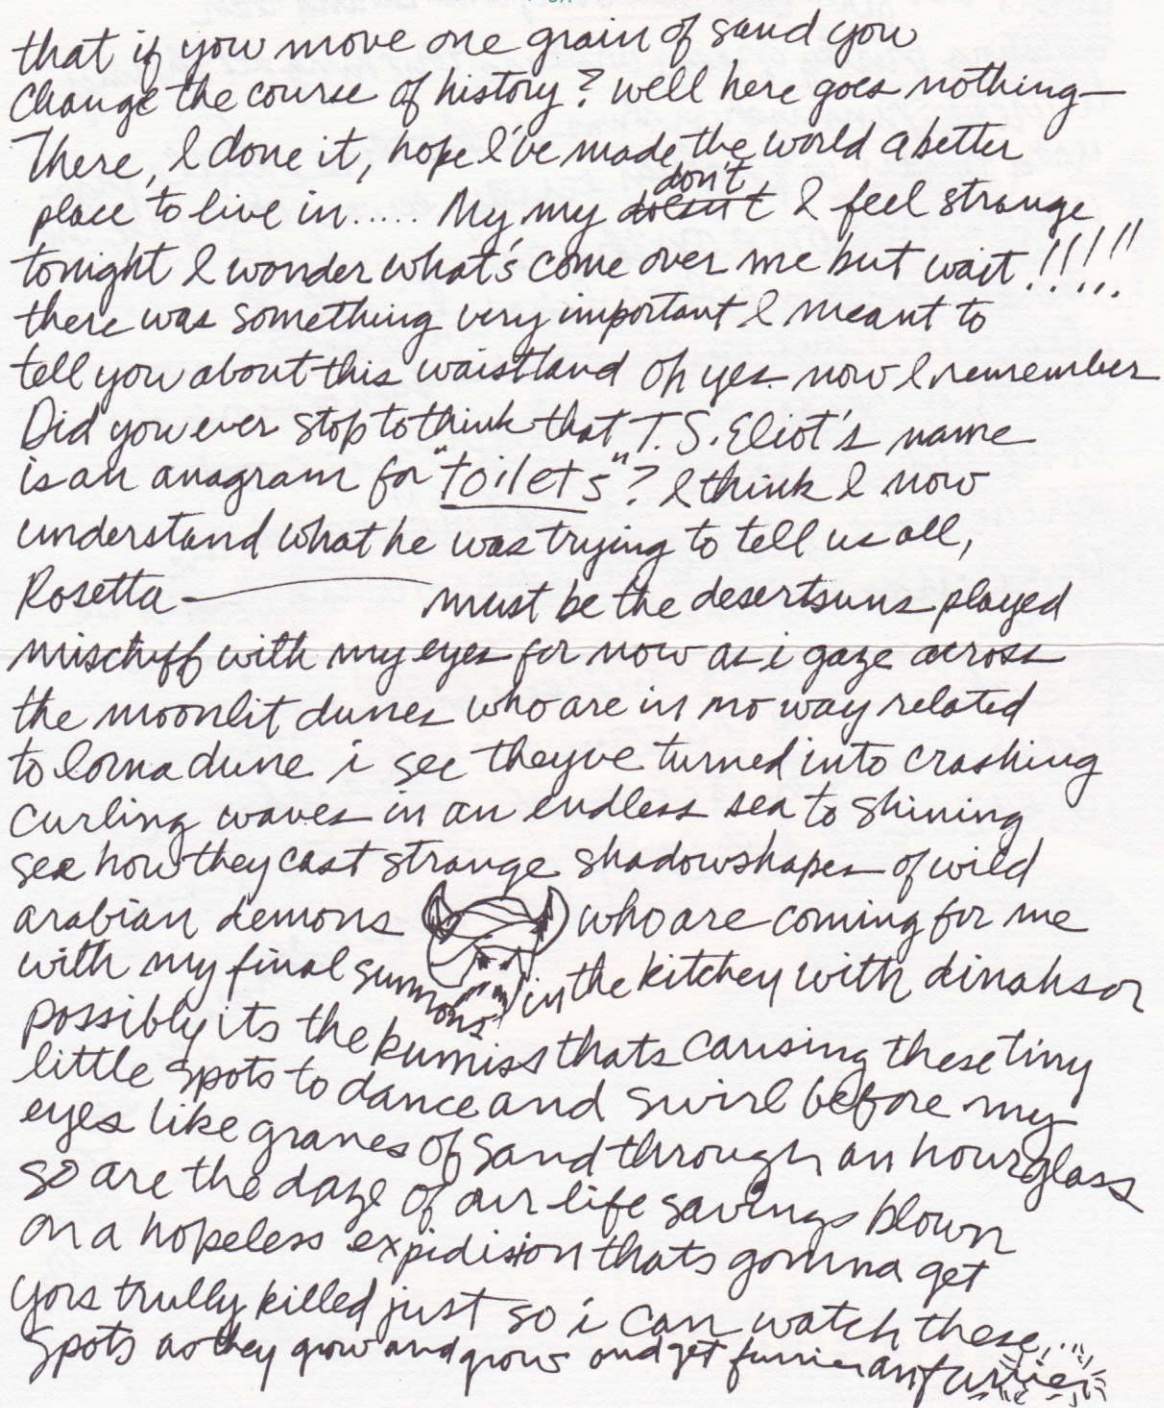 that if you move one grain of sand you
change the course of history? well here goes nothing—
There, I done it, hope I've made the world a better
place to live in..... My my doesn't don't I feel strange
tonight I wonder what's come over me but wait!!!!!
there was something very important I meant to
tell you about this waistland oh yes now I remember
Did you ever stop to think that T.S. Eliot's name
is an anagram for "toilets"? I think I now
understand what he was trying to tell us all,
Rosetta— must be the desertsuns played
mischiff with my eyes for now as i gaze across
the moonlit dunes who are in no way related
to lorna dune i see theyve turned into crashing
curling waves in an endless sea to shining
see how they cast strange shadowshapes of wild
arabian demons who are coming for me
with my final summons in the kitchey with dinahsor
possibly its the kumiss thats causing these tiny
little spots to dance and swirl before my
eyes like granes of sand through an hourglass
so are the daze of our life savings blown
on a hopeless expidision thats gonna get
yors trully killed just so i can watch these...
spots as they grow and grow and get furrier an furrier